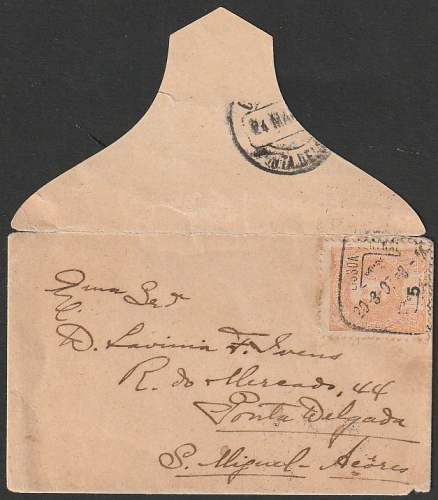 24 MA
PONTA DEL
LISBOA CENTRAL
20-3-07-8
5
Exma Snra
D. Lavinia F. Ivens
R. do Mercado, 44
Ponta Delgada
S. Miguel - Açôres